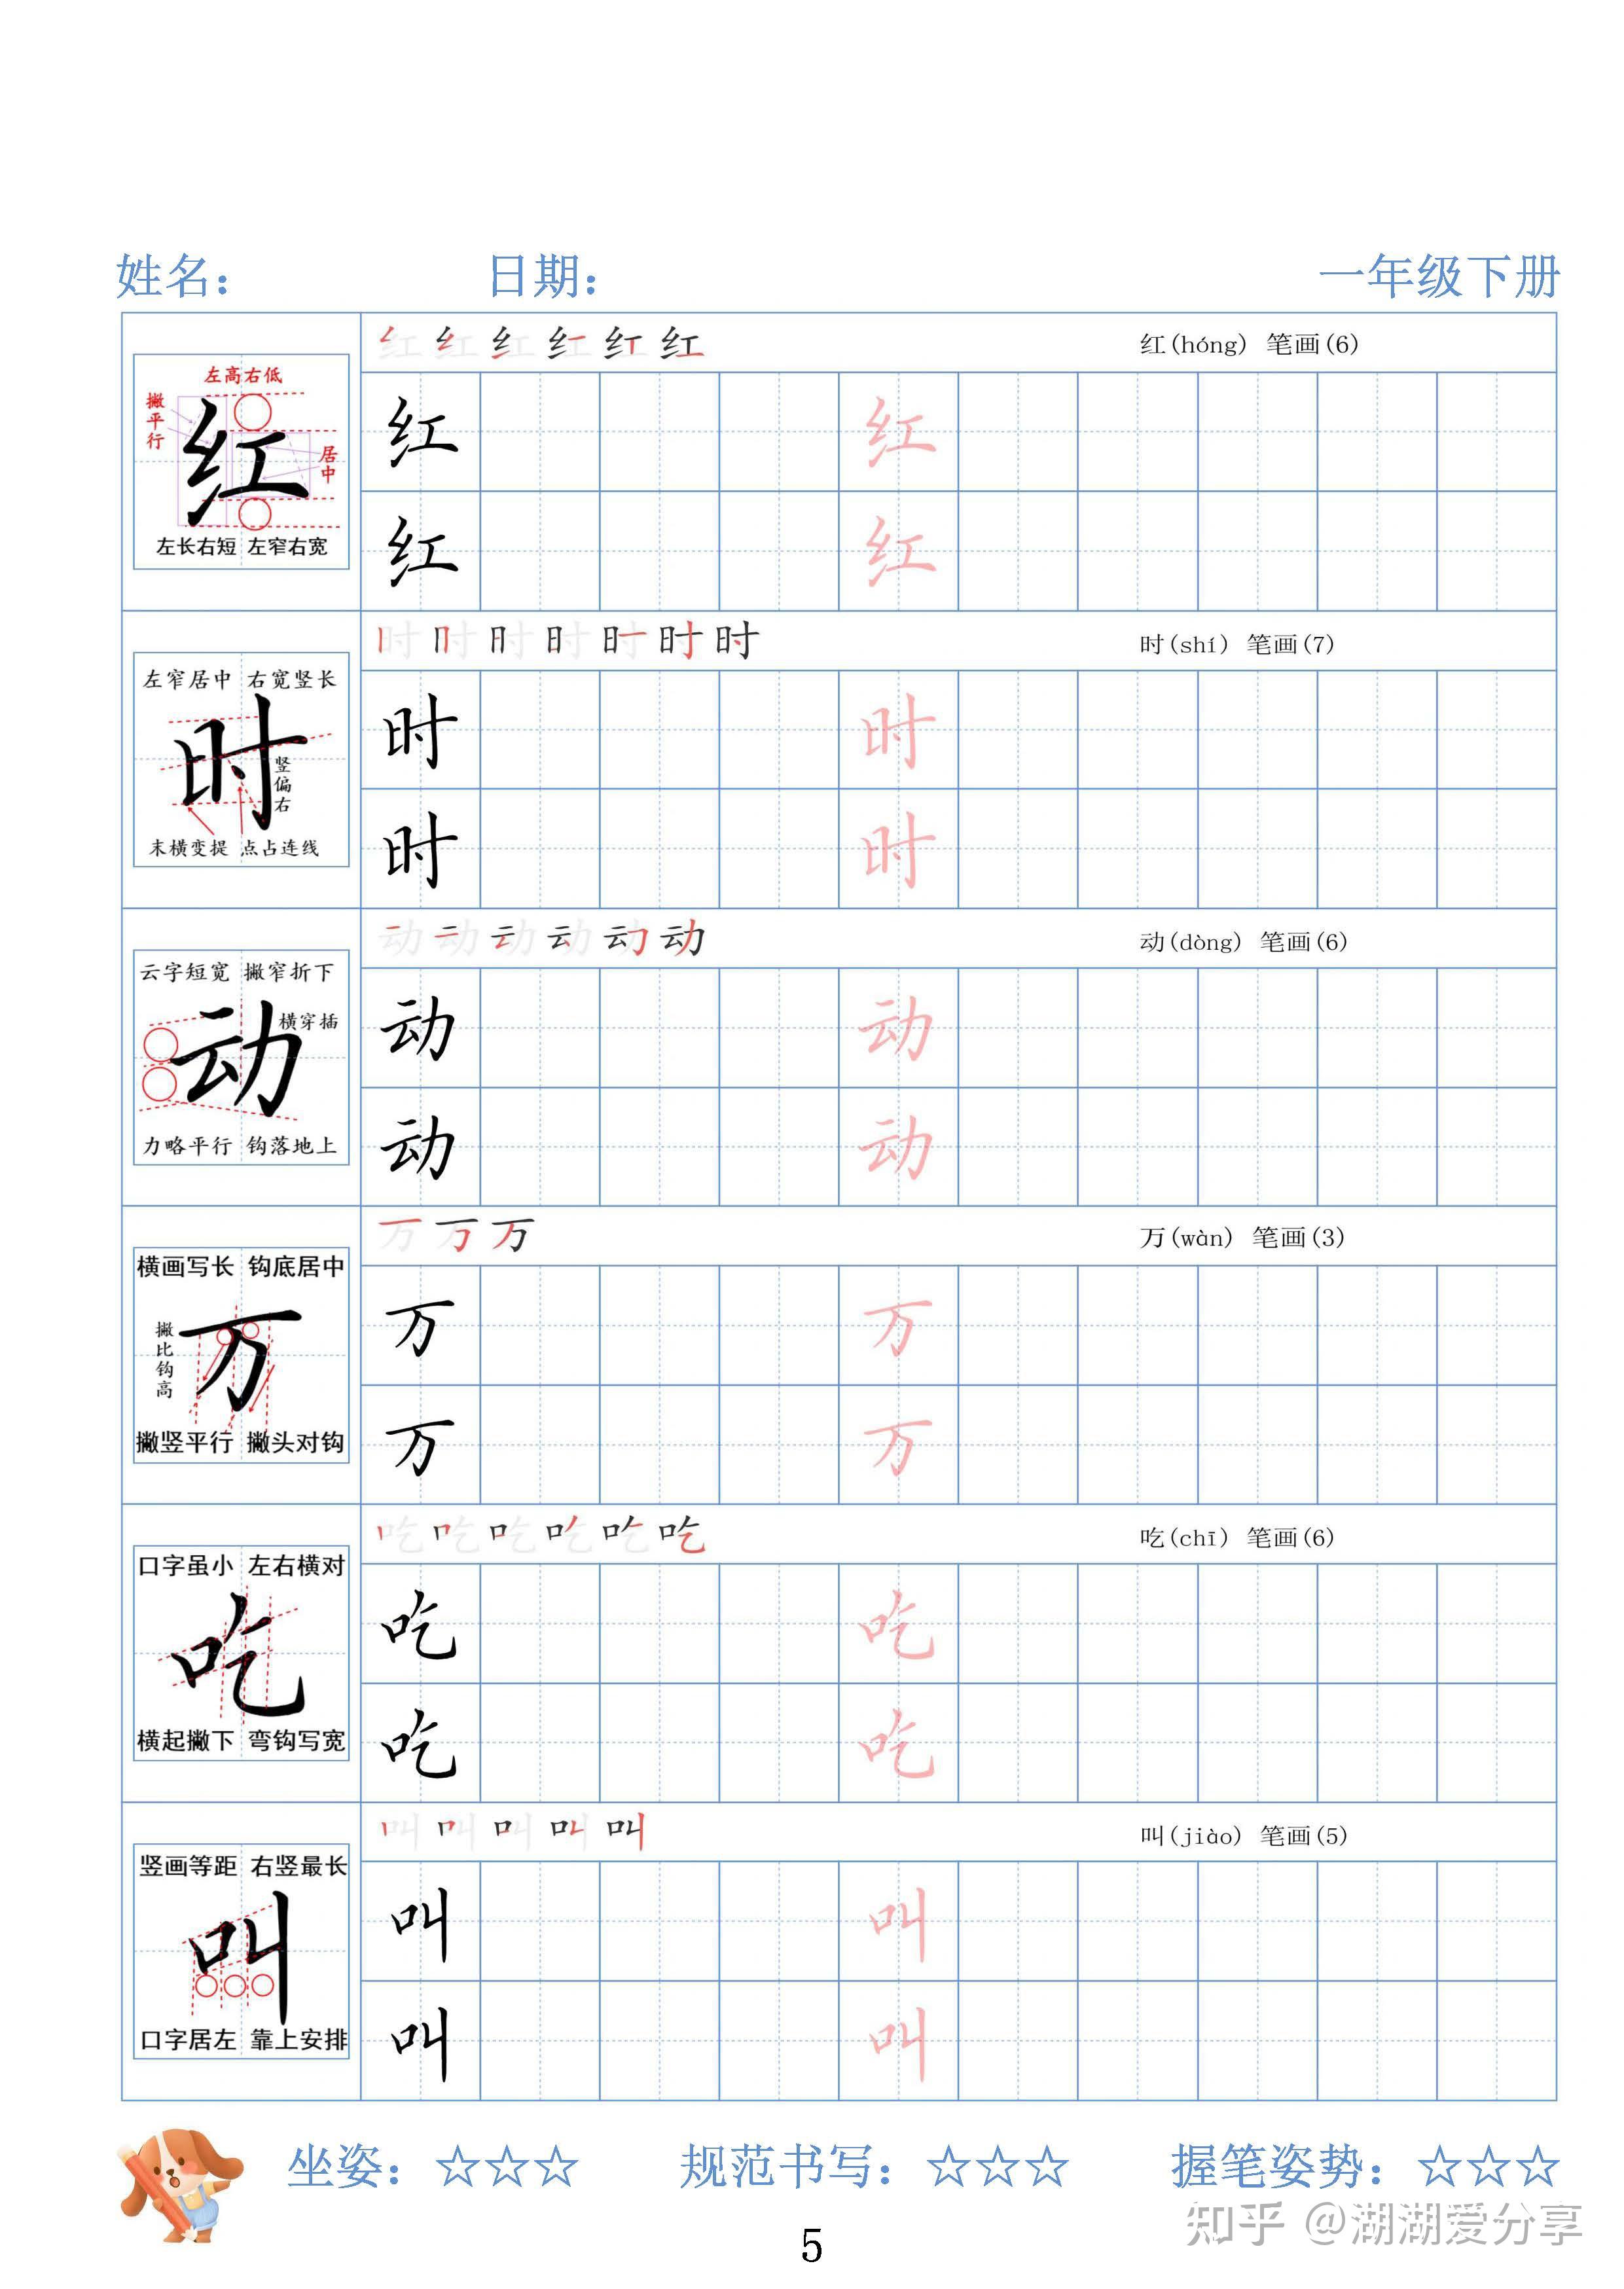 姓名： 日期： 一年级下册
红 红 红 红 红 红 红(hóng) 笔画(6)
左高右低
撇平行
红
居中
左长右短 左窄右宽
红 红
红 红
时 时 时 时 时 时 时 时(shí) 笔画(7)
左窄居中 右宽竖长
时
竖偏右
末横变提 点占连线
时 时
时 时
动 动 动 动 动 动 动(dòng) 笔画(6)
云字短宽 撇窄折下
横穿插
动
力略平行 钩落地上
动 动
动 动
万 万 万 万(wàn) 笔画(3)
横画写长 钩底居中
撇比钩高
万
撇竖平行 撇头对钩
万 万
万 万
吃 吃 吃 吃 吃 吃 吃(chī) 笔画(6)
口字虽小 左右横对
吃
横起撇下 弯钩写宽
吃 吃
吃 吃
叫 叫 叫 叫 叫 叫(jiào) 笔画(5)
竖画等距 右竖最长
叫
口字居左 靠上安排
叫 叫
叫 叫
坐姿：☆☆☆ 规范书写：☆☆☆ 握笔姿势：☆☆☆
知乎 @湖湖爱分享
5